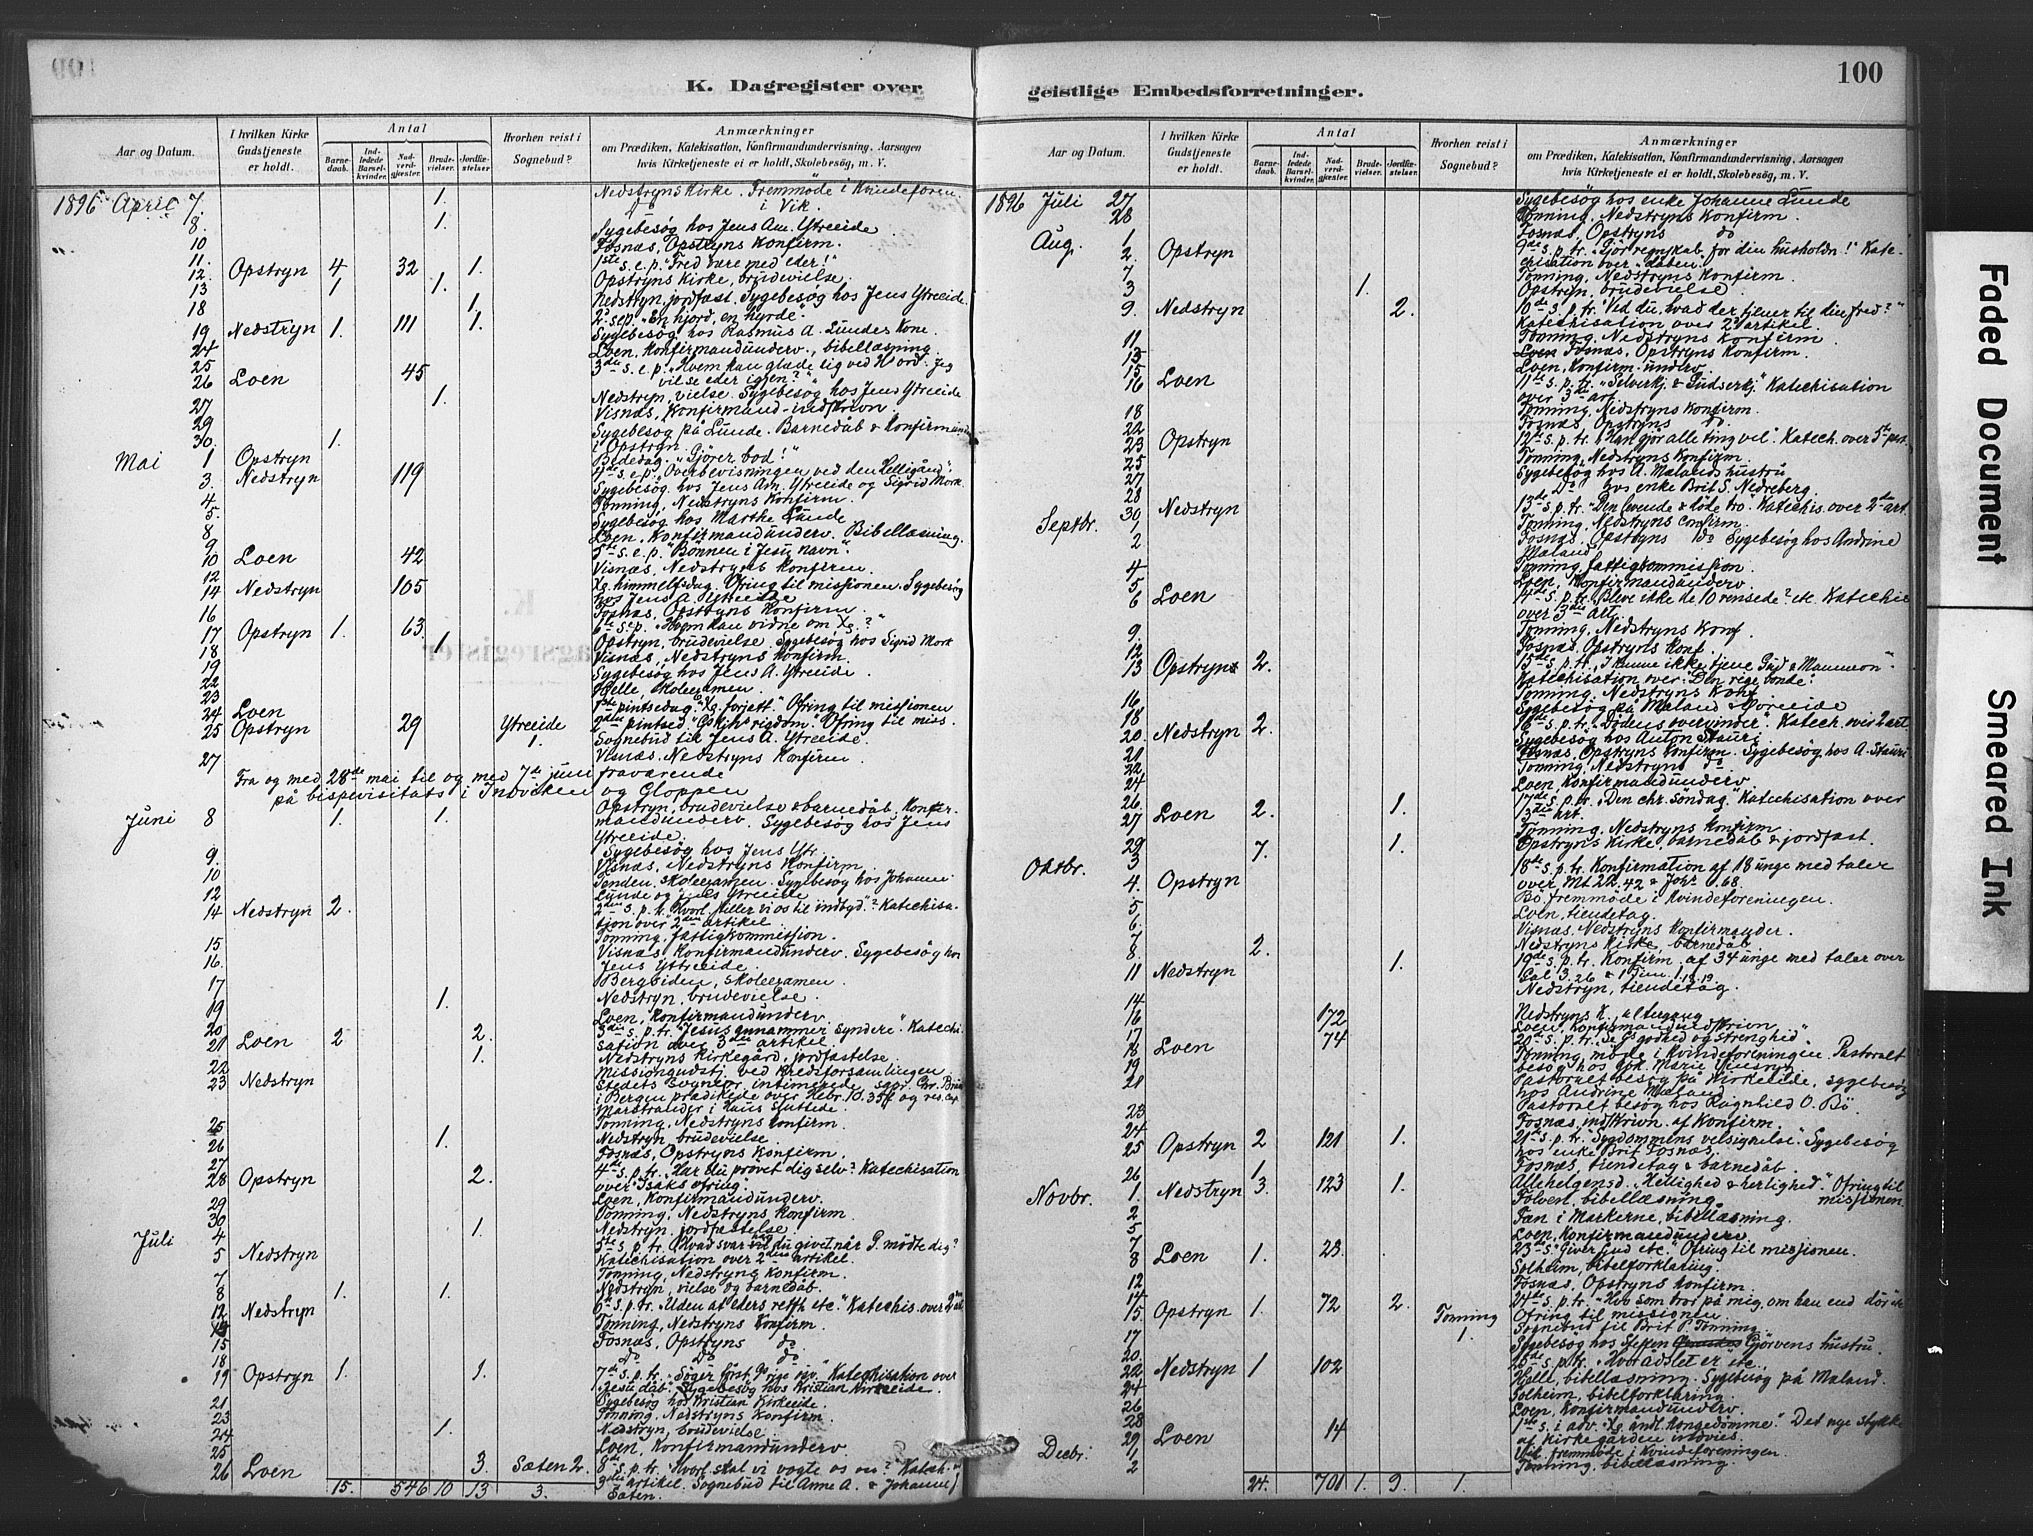 100
K. Dagregister over geistlige Embedsforretninger.
Aar og Datum.
I hvilken Kirke Gudstjeneste er holdt.
Antal
Barnedaab.
Indledede Barselkvinder.
Nadverdgjæster.
Brudevielser.
Jordfæstelser.
Hvorhen reist i Sognebud?
Anmærkninger
om Prædiken, Katekisation, Konfirmandundervisning, Aarsagen
hvis Kirketjeneste ei er holdt, Skolebesög, m. V.
1896 April 7. 1. Nedstryns Kirke. Fremmøde i Kvindeforen.
i Vik.
8. 1. Sygebesøg hos Jens Am. Ytreeide
10 Fosnæs, Opstryns Konfirm.
11.
12. Opstryn 4 32 1. 1ste s. e. p. "Fred være med eder!"
13 1 1. Opstryns Kirke, brudevielse.
18 1. Nedstryn, jordfæst. Sygebesøg hos Jens Ytreeide.
19 Nedstryn 1. 111 1. 2. s. e. p. "En hjord, en hyrde"
24 Sygebesøg hos Rasmus A. Lundes Kone.
25 Loen, Konfirmandunderv., bibellæsning
26 Loen 45 3die s. e. p. "Hvem kan glæde sig ved Hs ord: Jeg
vil se eder igjen?"
27 1. Nedstryn, vielse. Sygebesøg hos Jens Ytreeide
29 Visnæs, Konfirmand-indskrivn.
30. 1. Sygebesøg på Lunde. Barnedåb & Konfirmund
i Opstryn.
Mai 1 Opstryn Bededag. "Gjører bod!"
3. Nedstryn 119 4de s. e. p. "Overbevisningen ved den Helligånd".
4. Sygebesøg hos Jens Am. Ytreeide og Sigrid Mork
5. Tonning, Nedstryns Konfirm.
8 Sygebesøg hos Marthe Lunde
9 Loen, Konfirmandunderv. Bibellæsning.
10 Loen 42 5te s. e. p. "Bønnen i Jesu navn".
12 Visnæs, Nedstryns Konfirm.
14 Nedstryn 105 Xs himmelfsdag. Ofring til missionen. Sygebesøg
hos Jens A. Ytreeide
16 Fosnæs, Opstryns Konfirm.
17 Opstryn 1. 63. 6te s. e. p. "Hvem kan vidne om Xs?"
18 1 Opstryn, brudevielse. Sygebesøg hos Sigrid Mork
19 Visnæs, Nedstryns Konfirm.
22 Sygebesøg hos Jens A. Ytreeide.
23 Helle, skoleexamen.
24 Loen 1ste pintsedag. "Xs forjætt." Ofring til missionen
25 Opstryn 29 Ytreeide 1. 2den pintsed. "Gs Kjhs rigdom". Ofring til miss.
Sognebud til Jens A. Ytreeide.
27 Visnæs, Nedstryns Konfirm
Fra og med 28de mai til og med 7de juni fraværende
på bispevisitats i Indviken og Gloppen
Juni 8 1. 1. Opstryn, brudevielse & barnedåb, Konfir-
mandunderv. Sygebesøg hos Jens
Ytreeide.
9. Sygebesøg hos Jens Ytr.
10 Visnæs, Nedstryns Konfirm
12 Tenden, skoleexamen. Sygebesøg hos Johanne
Lunde og Jens Ytreeide
14 Nedstryn 2. 2den s. p. tr. "Hvorl. stiller vi os til indbyd."? Katechisa-
tion over 2den artikel
15 Tonning, fattigkommission.
16. Visnæs, Konfirmandunderv. Sygebesøg hos
Jens Ytreeide.
17 Bergsiden, skoleexamen.
19 1. Nedstryn, brudevielse.
20 Loen, Konfirmandunderv
21 Loen 2 2. 3die s. p. tr. "Jesus annammer syndere". Katechi-
sation over 3die artikel.
22 1. Nedstryns Kirkegård, jordfæstelse.
23 Nedstryn Missiongudstj. ved Kredsforsamlingen
Stedets Sognepr. intimerede, sgpr. Chr. Brun
i Bergen prædikede over Hebr. 10.35 og res. cap.
Marstrander i Haus sluttede.
25 Tonning, Nedstryns Konfirm.
26 1. Nedstryn, brudevielse.
27 Fosnæs, Opstryns Konfirm.
28 Opstryn 2. 4de s. p. tr. "Har du prøvet dig selv? Katechisation
over "Isaks ofring".
29 Loen, Konfirmandunderv.
30 Tonning, Nedstryns Konfirm.
Juli 4 1. Nedstryn, jordfæstelse.
5 Nedstryn 5te s. p. tr. "Hvad svar du givet når G. mødte dig?
Katechisation over 2den artikel.
7 Tonning, Nedstryns Konfirm.
8 1. 1. Nedstryn, vielse og barnedåb.
12 Nedstryn 6te s. p. tr. "Uden at eders retfh etc." Katechis. over 2den art.
Tonning, Nedstryns Konfirm.
15 Fosnæs, Opstryns do.
18 Do Do do
19 Opstryn 1. 1. 7de s. p. tr. "Søger først Gs rige osv." Katechisation over
"Jesu dåb". Sygebesøg hos Kristian Kirkeeide.
21 Sygebesøg hos Kristian Kirkeeide.
23 Tonning, Nedstryns Konfirm.
24 1. Nedstryn, brudevielse.
25 Loen, Konfirmandunderv
26 Loen 3. Sæten 2. 8de s. p. tr. "Hvorl. skal vi vogte os osv?" Katech.
3die artikel. Sognebud til Anne A. & Johanne J.
Sæten.
15. 546 10 13 3.
Aar og Datum.
I hvilken Kirke Gudstjeneste er holdt.
Antal
Barnedaab.
Indledede Barselkvinder.
Nadverdgjæster.
Brudevielser.
Jordfæstelser.
Hvorhen reist i Sognebud?
Anmærkninger
om Prædiken, Katekisation, Konfirmandundervisning, Aarsagen
hvis Kirketjeneste ei er holdt, Skolebesög, m. V.
1896 Juli 27 Sygebesøg hos enke Johanne Lunde
28 Tonning, Nedstryns Konfirm.
Aug. 1. Fosnæs, Opstryns do
2. Opstryn 9de s. p. tr. "Gjør regnskab for din husholdn!" Kate-
chisation over "dåben".
7 Tonning, Nedstryns Konfirm.
3 1. Opstryn, brudevielse.
9. Nedstryn 2. 10de s. p. tr. "Vid du, hvad der tjener til din fred?"
Katechisation over 2. artikel.
11 Tonning, Nedstryns Konfirm
13 Fosnæs, Opstryns Konfirm.
15 Loen, Konfirm. underv.
16 Loen 11te s. p. tr. "Selverkj. & Gudserkj." Katechisation
over 3die art.
18 Tonning, Nedstryns Konfirm.
22 Fosnæs, Opstryns do.
23 Opstryn 12te s. p. tr. "Han gjør alle ting vel". Katech. over 5te part.
25 Tonning, Nedstryns Konfirm.
27 Sygebesøg hos A. Mælands hustru
28 Do hos enke Brit S. Nedreberg.
30 Nedstryn 13de s. p. tr. "Den levende & døde tro". Katechis. over 2den art.
Septbr. 1 Tonning, Nedstryns confirm.
2 Fosnæs, Opstryns do Sygebesøg hos Andrine
Mæland
4 Tonning, fattigkommission.
5 Loen, Konfirmandunderv.
6 Loen 14de s. p. tr. "Bleve ikke de 10 rensede? etc. Katechis
over 3die art.
9. Tonning, Nedstryns Konf.
12 Fosnæs, Opstryns Konf.
13 Opstryn 2. 15de s. p. tr. "I kunne ikke tjene Gud & Mammon".
Katechisation over "Den rige bonde".
16. Tonning, Nedstryns Konf
18 Sygebesøg på Mæland & Yoreeide
20 Nedstryn 2. 16de s. p. tr. "Dødens overvinder". Katech. over 2 art
Sygebesøg hos Anton Stauri
21 Fosnæs, Opstryns Konfirm. Sygebesøg hos A. Stauri
22 Tonning, Nedstryns do.
24 Loen, Konfirmandunderv
26.
27 Loen 2. 1. 17de s. p. tr. "Den chr. søndag". Katechisation over
3die art.
29 Tonning, Nedstryns Konfirm
Oktbr. 3 7. 1. Opstryns Kirke, barnedåb & jordfæst.
4. Opstryn 18de s. p. tr. Konfirmation af 18 unge med taler
over Mt 22.42 & Joh. 6.68.
5 Bø, fremmøde i Kvindeforeningen.
6. Loen, tiendetag.
7 Visnæs, Nedstryns Konfirmander.
8. 2. Nedstryns Kirke, barnedåb
11 Nedstryn 1. 19de s. p. tr. Konfirm. af 34 unge med taler over
Gal 3.26 & 1 Tim. 1.18.19.
14 Nedstryn, tiendetag.
16 172 Nedstryns K., altergang
17 Loen, Konfirmandindskrivn
18 Loen 74 20de s. p. tr. "Se Gs godhed og strenghed".
19 Tonning, møde i Kvindeforeningen. Pastoralt
besøg hos gbr. Marie Vinsryg.
21 Pastoralt besøg på Kirkeeide, sygebesøg
hos Andrine Mæland
23 Pastoralt besøg hos Ragnhild O. Bø.
24 Fosnæs, indskrivn. af Konfirm.
25 Opstryn 2 121 1. 21de s. p. tr. "Sygdommens velsignelse". Sygebesøg
hos enke Brit Fosnæs.
26 1. Fosnæs, tiendetag & barnedåb.
Novbr. 1. Nedstryn 3. 123 1. Allehelgensd. "Hellighed & herlighed." Ofring til
missionen.
2 Folven, bibellæsning
5 Fæn i Markerne, bibellæsning.
7 Loen, Konfirmandunderv.
8 Loen 1. 23. 23de s. "Giver Gud etc." Ofring til missionen.
12 Solheim, bibelforklaring.
14 Fosnæs, Opstryns Konfirm.
15 Opstryn 1. 72 2. Tonning 1. 24de s. p. tr. "Hvo som tror på mig, om han end dør"
Ofring til missionen
Sognebud til Brit P. Tonning.
17 Sygebesøg hos Steffen Gjørvens hustru.
20. 25de s. p. tr. "Hvor ådslet er" etc.
22 Nedstryn 1 102 Helle, bibellæsning. Sygebesøg på Mæland.
24 Solheim, bibelforklaring.
26 Loen, Konfirmandunderv.
28
29 Loen 14 1ste s. i adv. "Xs åndl. Kongedømme." Det nye stykke
af kirkegården indvies.
Decbr. 1 Vik, fremmøde i Kvindeforeningen.
2 Tonning, bibellæsning.
24. 701 1. 9. 1.
Faded Document
Smeared Ink